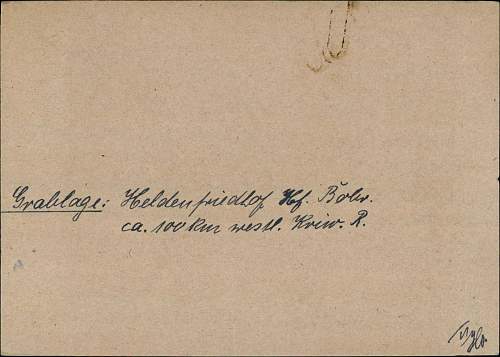 Grablage: Heldenfriedhof Hf. Bobr.
ca. 100 km westl. Kriw. R.